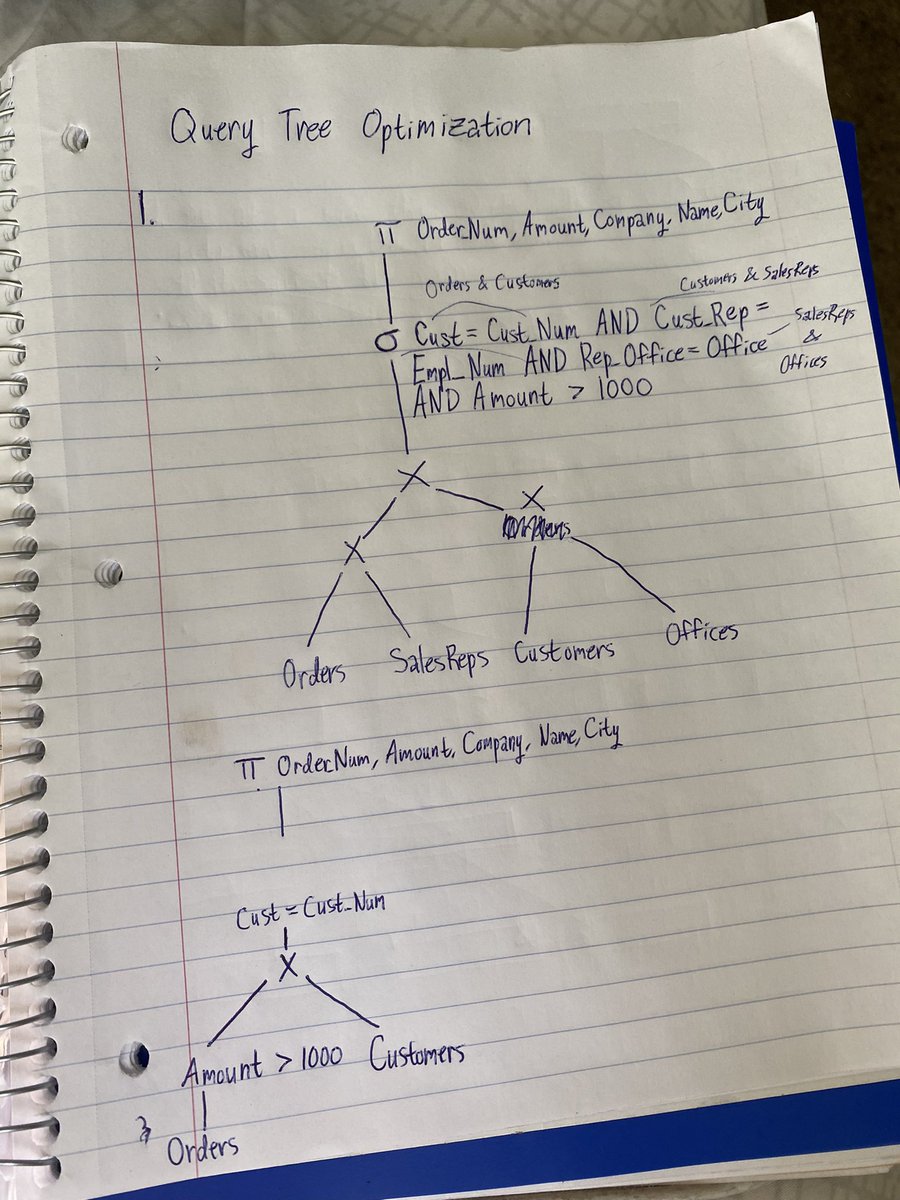 Query Tree Optimization
1.
π OrderNum, Amount, Company, Name, City
Orders & Customers
Customers & SalesReps
σ Cust = Cust_Num AND Cust_Rep =
SalesReps
Empl_Num AND Rep_Office = Office
&
Offices
AND Amount > 1000
X
X
X
Orders
SalesReps
Customers
Offices
π OrderNum, Amount, Company, Name, City
Cust = Cust_Num
X
Amount > 1000
Customers
Orders